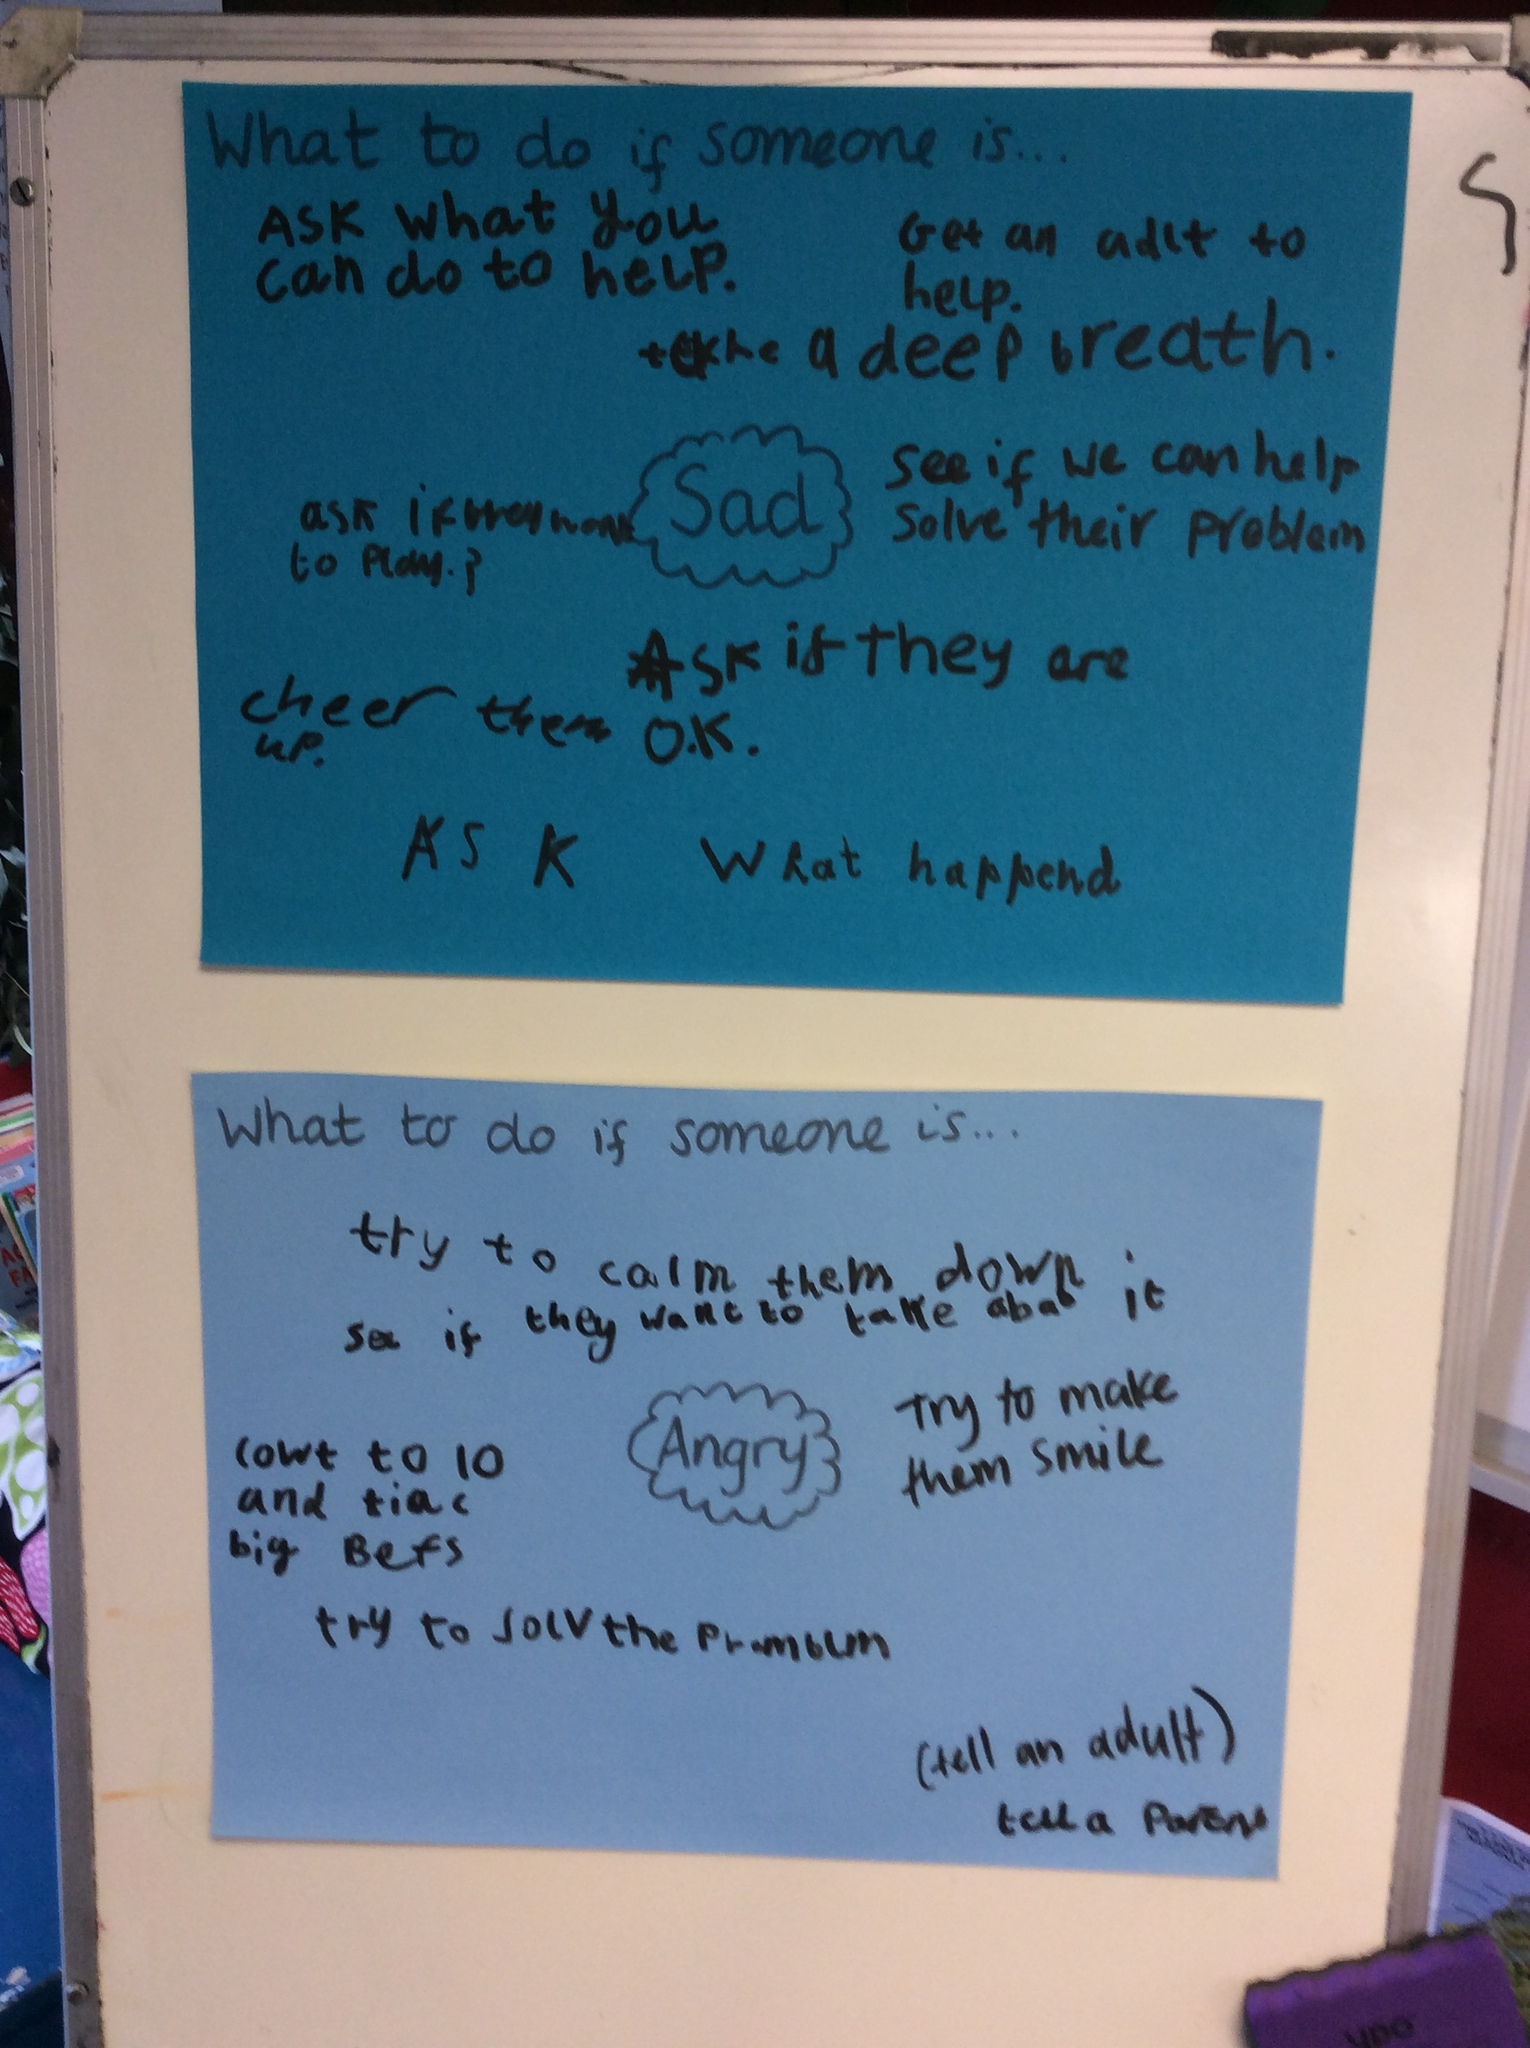 What to do if someone is...
ASK what you
can do to help.
Get an adlt to
help.
a deep breath.
Sad
see if we can help
solve their problem
ask if they want
to play.?
ASK if they are
O.K.
cheer them
up.
ASK What happend
What to do if someone is...
try to calm them down.
see if they want to talke abao it
Angry
Try to make
them smile
cowt to 10
and tiac
big Befs
try to solv the Prombum
(tell an adult)
tell a Parent
ypo